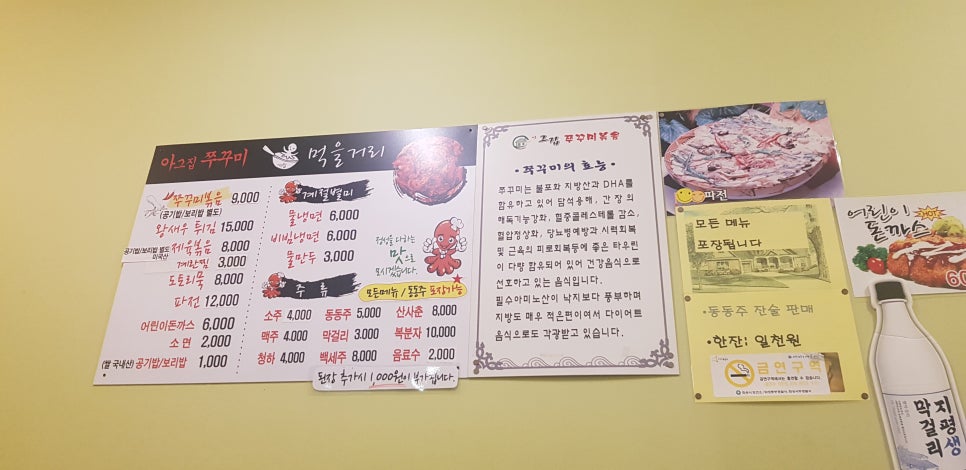 아그집 쭈꾸미 먹을거리
쭈꾸미볶음 9,000
(공기밥/보리밥 별도)
왕새우 튀김 15,000
공기밥/보리밥 별도 제육볶음 8,000
미국산
계란찜 3,000
도토리묵 8,000
파전 12,000
어린이돈까스 6,000
소면 2,000
(쌀 국내산)공기밥/보리밥 1,000
계절별미
물냉면 6,000
비빔냉면 6,000
물만두 3,000
정성을 다하는
맛으로
모시겠습니다.
주 류
모든메뉴/동동주 포장가능
소주 4,000 동동주 5,000 산사춘 8,000
맥주 4,000 막걸리 3,000 복분자 10,000
청하 4,000 백세주 8,000 음료수 2,000
된장 추가시 1,000원이 부가됩니다.
쭈꾸미볶음
·쭈꾸미의 효능·
쭈꾸미는 불포화 지방산과 DHA를
함유하고 있어 담석용해, 간장의
해독기능강화, 혈중콜레스테롤 감소,
혈압정상화, 당뇨병예방과 시력회복
및 근육의 피로회복등에 좋은 타우린
이 다량 함유되어 있어 건강음식으로
선호하고 있는 음식입니다.
필수아미노산이 낙지보다 풍부하며
지방도 매우 적은편이여서 다이어트
음식으로도 각광받고 있습니다.
파전
모든 메뉴
포장됩니다
·동동주 잔술 판매
·한잔: 일천원
금연구역
어린이 HOT
돈까스
60
지평생
막걸리